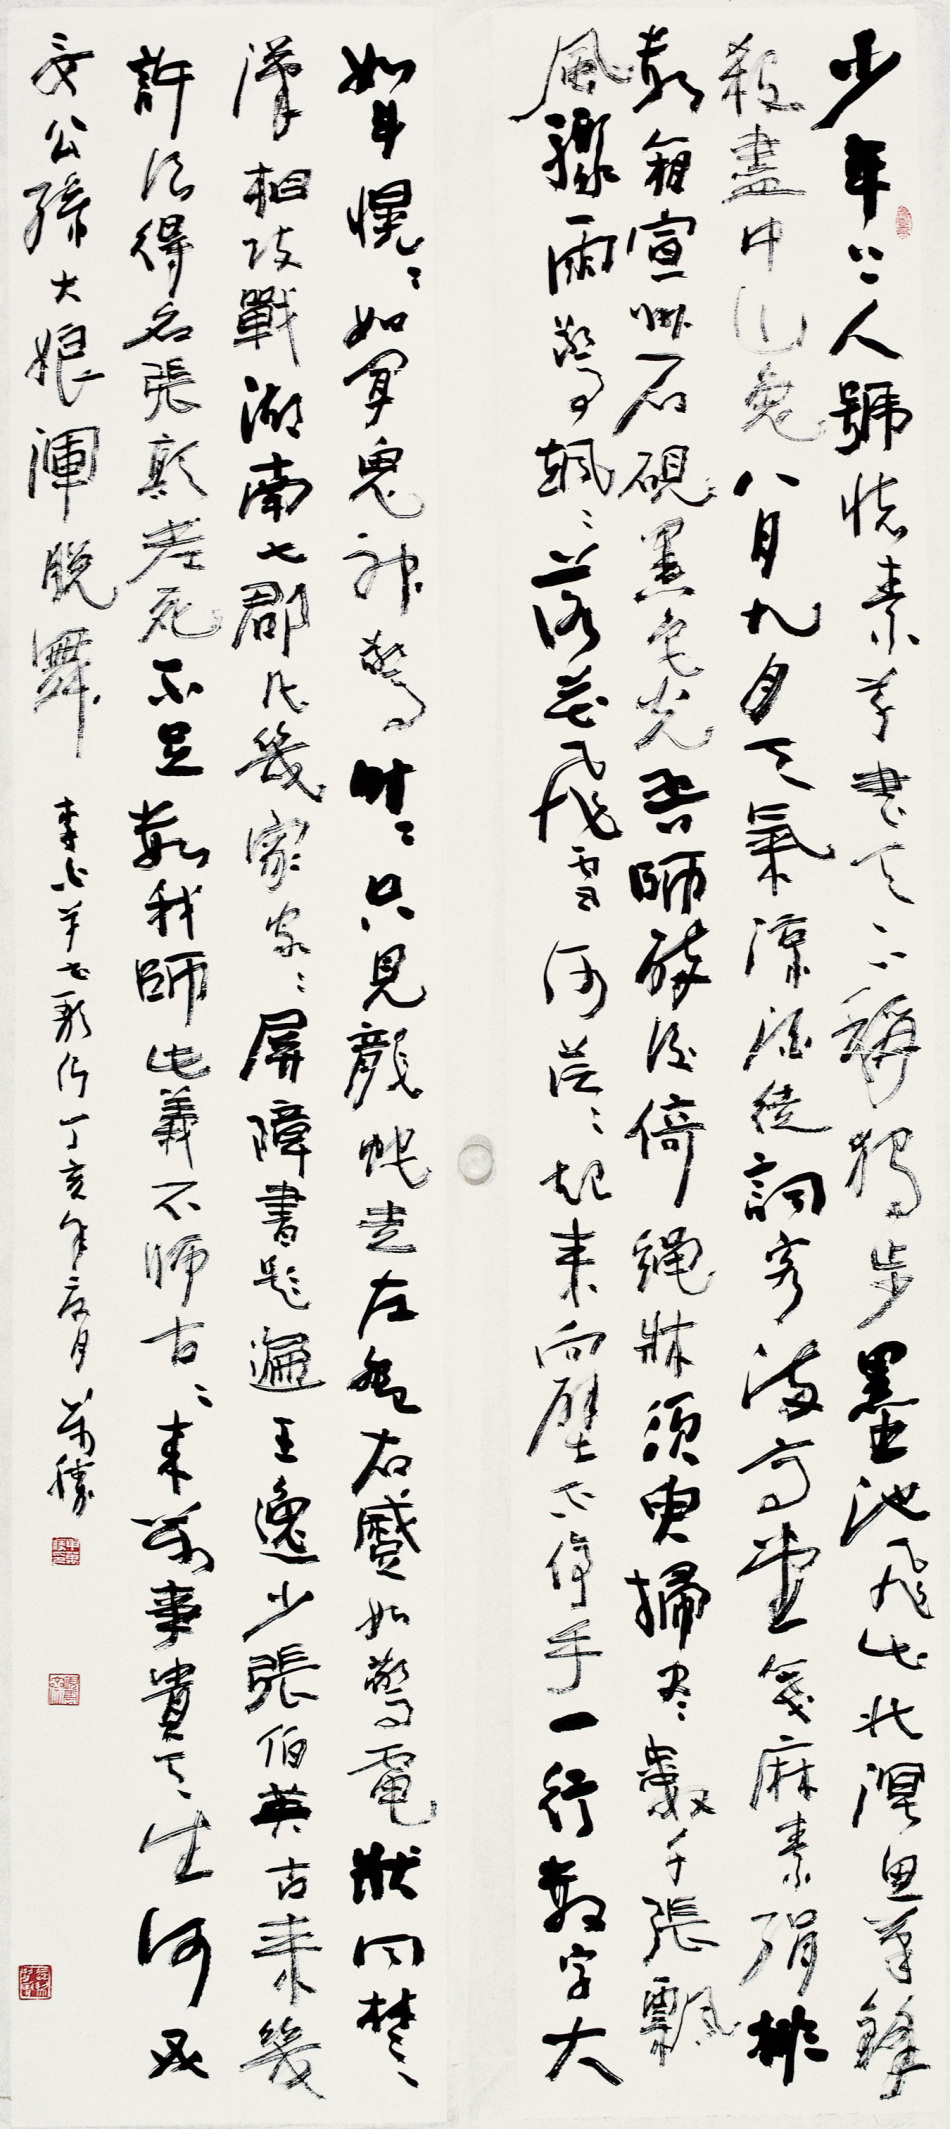 少年上人號懷素草書天下稱獨步墨池飛出北溟魚筆鋒
殺盡中山兔八月九月天氣涼酒徒詞客滿高堂箋麻素絹排
數箱宣州石硯墨色光吾師醉後倚繩牀須臾掃尽數千張飄
風驟雨驚颯々落花飛雪何茫々起來向壁不停手一行數字大
如斗愰々如聞鬼神驚時々只見龍蛇走左盤右蹙如驚電狀同楚
漢相攻戰湖南七郡凡幾家家々屏障書題遍王逸少張伯英古來幾
許浪得名張顛老死不足數我師此義不師古々來萬事貴天生何必
要公孫大娘渾脫舞 李白草書歌行丁亥年夏月 萬勝